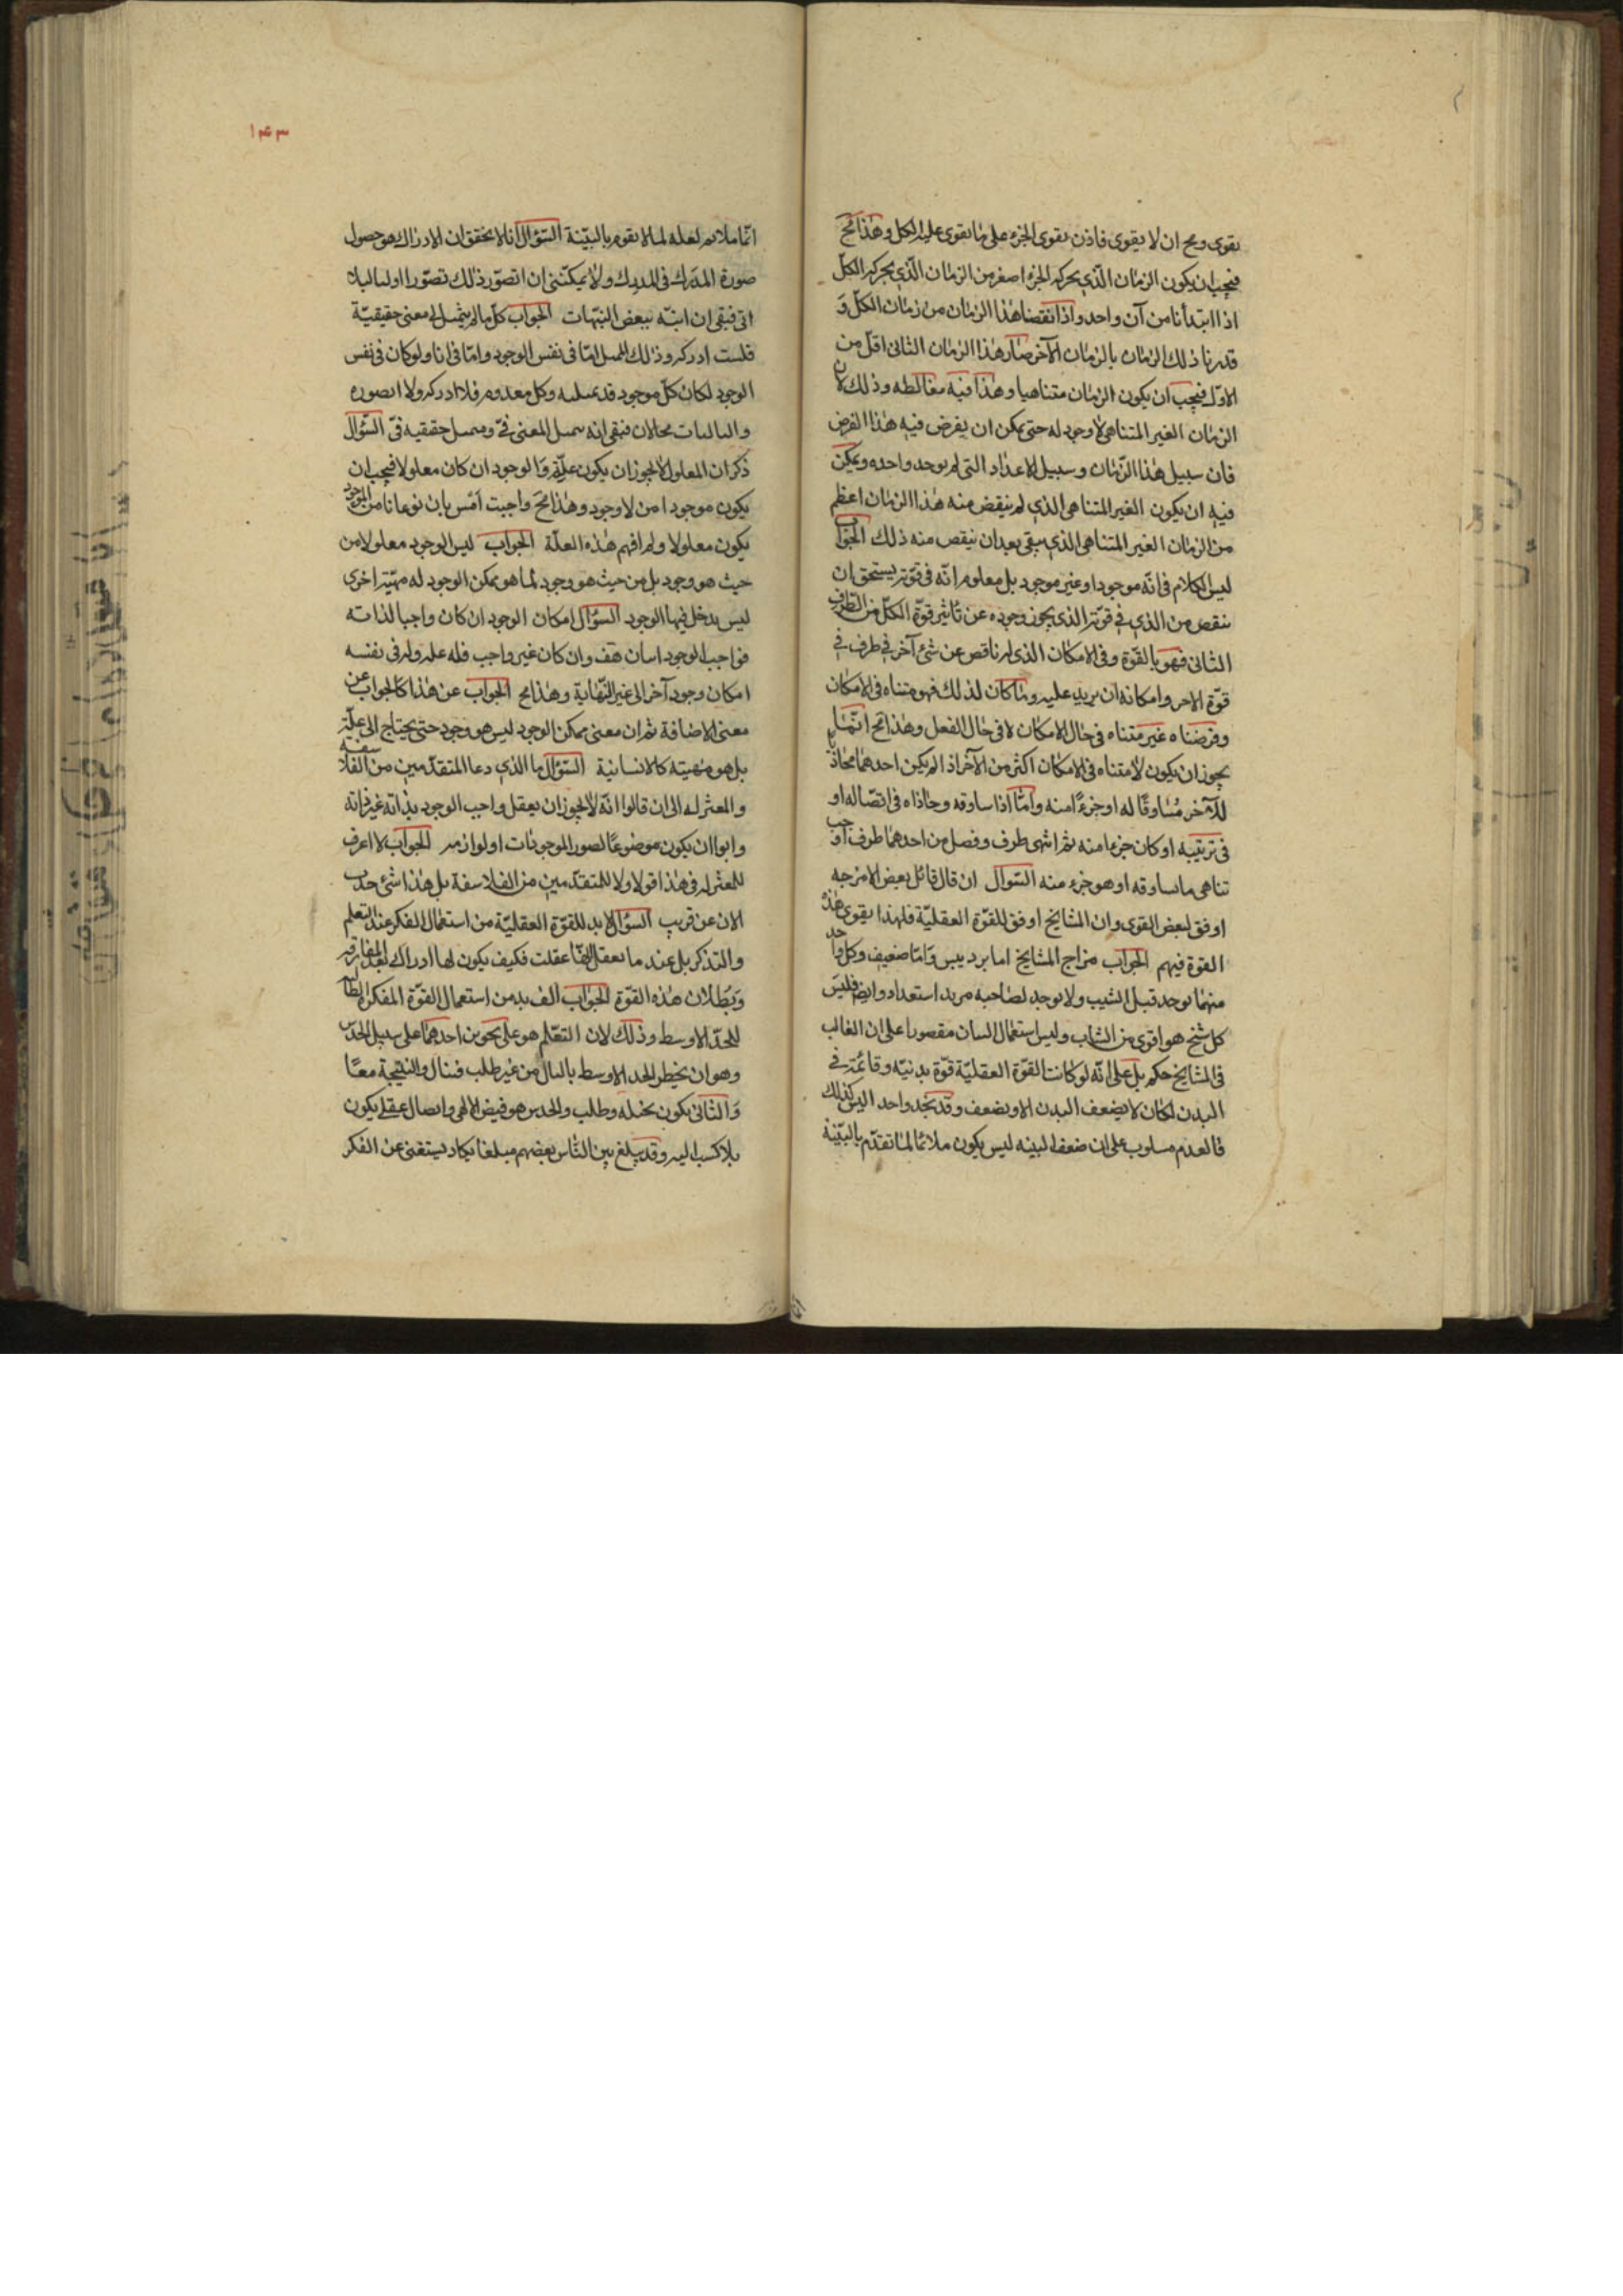 يقوى ومح ان لا يقوى فاذن يقوى الجزء على ما يقوى عليه الكل وهذا مح
فيجب ان يكون الزمان الذي يحركه الجزء اصغر من الزمان الذي يحركه الكل
اذا ابتدأنا من آن واحد واذا نقصنا هذا الزمان من زمان الكل و
قدرنا ذلك الزمان بالزمان الآخر صار هذا الزمان الثانى اقل من
الاول فيجب ان يكون الزمان متناهيا وهذا فيه مغالطه وذلك لان
الزمان الغير المتناهى لا وجود له حتى يمكن ان يفرض فيه هذا الفرض
فان سبيل هذا الزمان وسبيل الاعداد التى لم توجد واحده ويمكن
فيه ان يكون الغير المتناهى الذي لم ينقص منه هذا الزمان اعظم
من الزمان الغير المتناهى الذي يبقى بعد ان ينقص منه ذلك الجواب
ليس الكلام فى انه موجود او غير موجود بل معلوم انه فى قوته يستحق ان
ينقص من الذي فى قوته الذي يجوز وجوده عن تأثير قوة الكل من الطرف
الثانى فهو بالقوة وفى الامكان الذى له ناقص عن شئ آخر فى طرف فى
قوة الاخر وامكانه ان يزيد عليه وما كان لذلك فهو متناه فى الامكان
وفرضناه غير متناه فى حال الامكان لا فى حال الفعل وهذا مح انما
يجوز ان يكون لا متناه فى الامكان اكثر من الآخر اذا لم يكن احدهما محاذيا
للآخر مساوقا له او جزءا منه واما اذا ساوقه وحاذاه فى اتصاله او
فى ترتيبه او كان جزءا منه ثم انتهى طرف وفصل من احدهما طرف اوجب
تناهى ما ساوقه او هو جزء منه السؤال ان قال قائل بعض الامزجه
اوفق لبعض القوى وان المشايخ اوفق للقوة العقلية فلهذا يقوى هذه
القوة فيهم الجواب مزاج المشايخ اما برد ويبس واما ضعيف وكل واحد
منهما يوجد قبل الشيب ولا يوجد لصاحبه مزيد استعداد وايضا فليس
كل شيخ هو اقوى من الشاب وليس استعمال البيان مقصورا على ان الغالب
فى المشايخ حكم بل على انه لو كانت القوة العقلية قوة بدنية وقائمة فى
البدن لكان لا يضعف البدن الا ويضعف وقد نجد واحدا ليس كذلك
فالعدم مسلوب على ان ضعف البنيه ليس يكون ملائما لما تقدم بالبنية
١٤٣
انما ملائم لعله لما لا يقوم بالبنية السؤال انا لا نحقق ان الادراك هو حصول
صورة المدرك فى المدرك ولا يمكننى ان اتصور ذلك تصورا اوليا
انى فبقى ان انبه ببعض النبهات الجواب كل ما لم يتمثل لى معنى حقيقته
فلست ادركه وذلك اما فى نفس الوجود واما فى انا ولو كان فى نفس
الوجود لكان كل موجود قد وكل معدوم فلا ادركه ولا اتصوره
محالان فبقى انه المعنى فى حقيقته فى السؤال
ذكر ان المعلول لا يجوز ان يكون علة والوجود ان كان معلولا فيجب ان
يكون موجودا من لا وجود وهذا مح واجبت امس بان نوعا ما من الموجود
يكون معلولا ولم افهم هذه العلة الجواب ليس الوجود معلولا من
حيث هو وجود بل من حيث هو وجود لما هو ممكن الوجود له مهية اخرى
ليس يدخل فيها الوجود السؤال امكان الوجود ان كان واجبا لذاته
فواجب الوجود هف وان كان غير واجب فله علة وله فى نفسه
امكان وجود آخر الى غير النهاية وهذا مح الجواب عن هذا كالجواب عن
معنى الاضافة ثم ان معنى ممكن الوجود ليس هو وجود حتى يحتاج الى علة
بل هو مهيته كالانسانية السؤال ما الذي دعا المتقدمين من الفلاسفه
والمعتزله الى ان قالوا انه لا يجوز ان يعقل واجب الوجود بذاته غير ذاته
وابوا ان يكون موضوعا لصور الموجودات او لوازمه الجواب لا اعرف
للمعتزله فى هذا قولا ولا للمتقدمين من الفلاسفة بل هذا شئ حدث
الان عن قريب السؤال لا بد للقوة العقلية من استعمال الفكر عند التعلم
والتذكر بل عند ما تعقل انها عقلت فكيف يكون لها ادراك بعد المفارقه
وبطلان هذه القوة الجواب من استعمال القوة المفكرة الطالبه
للحد الاوسط وذلك لان التعلم هو على نحوين احدهما على سبيل الحدس
وهو ان يخطر الحد الاوسط بالبال من غير طلب فينال والنتيجة معا
والثانى يكون بحيلة وطلب والحدس هو فيض الالهى واتصال عقلى يكون
بلا كسب البته وقد يبلغ بين الناس بعضهم مبلغا يكاد يستغنى عن الفكر